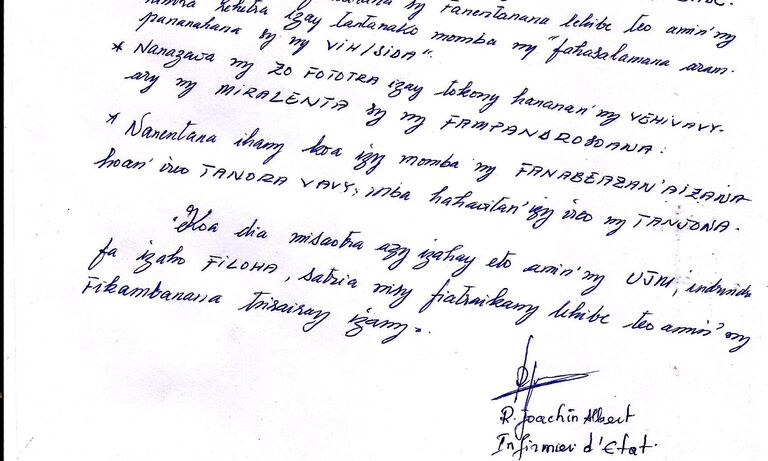 sy Fanentanana lehibe teo amin'ny
izay tantanako momba ny "fahasalamana aram.
pananahana sy ny VIH/SIDA".
* Nanazava ny ZO FOTOTRA izay tokony hananan'ny VEHIVAVY.
ary ny MIRALENTA sy ny FAMPANDROSOANA.
* Nanentana ihany koa izy momba ny FANABEAZAN'AIZANA
hoan' ireo TANORA VAVY; mba hahavitan'izy ireo ny TANJONA.
Koa dia misaotra azy izahay eto amin'ny UJM, indrindra
fa izaho FILOHA, satria nisy fiatraikany lehibe teo amin'ny
Fikambanana tsirairay izany.
R. Joachin Albert
Infirmier d'Etat.